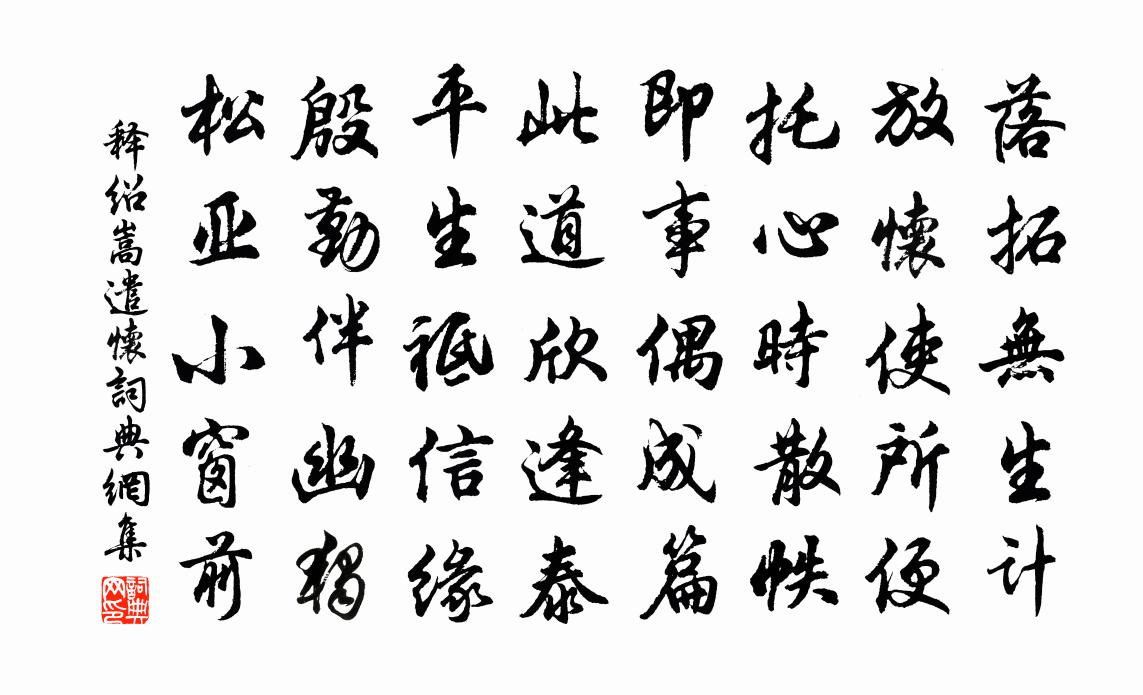 落拓無生计
放懷使所便
托心時散帙
即事偶成篇
此道欣逢泰
平生祗信缘
殷勤伴幽独
松亚小窗前
释绍嵩遣懷詞典網集
詞典网印